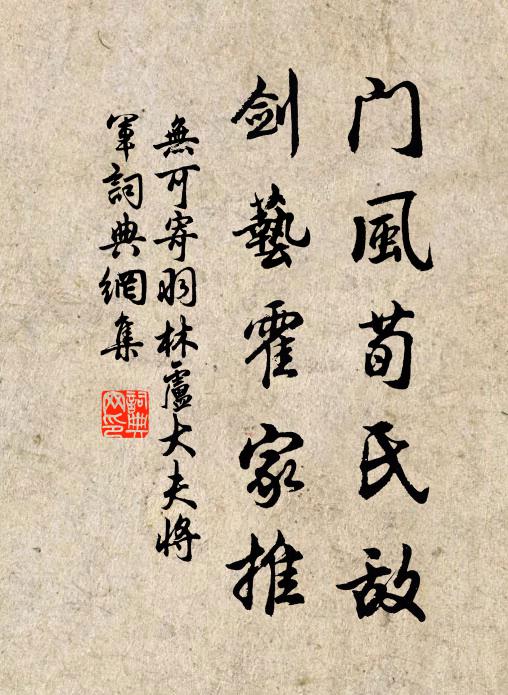 门風荀氏敌
剑藝霍家推
無可寄羽林盧大夫將
軍詞典網集
詞典
网印